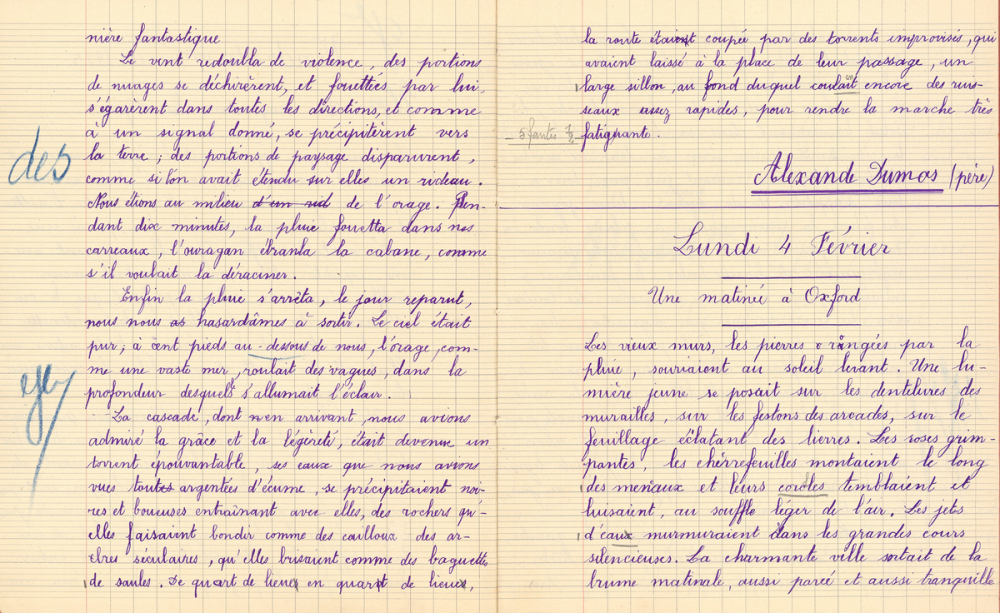 nière fantastique
Le vent redoubla de violence, des portions
de nuages se déchirèrent, et fouettées par lui,
s'égarèrent dans toutes les directions, et comme
à un signal donné, se précipitèrent vers
des
la terre ; des portions de paysage disparurent,
comme si l'on avait étendu sur elles un rideau.
Nous étions au milieu d'un rid de l'orage. Pen-
dant dix minutes, la pluie fouetta dans nos
carreaux, l'ouragan ébranla la cabane, comme
s'il voulait la déraciner.
Enfin la pluie s'arrêta, le jour reparut,
nous nous as hasardâmes à sortir. Le ciel était
pur ; à cent pieds au-dessous de nous, l'orage, com-
me une vaste mer, roulait des vagues, dans la
profondeur desquels s'allumait l'éclair.
La cascade, dont en arrivant, nous avions
admiré la grâce et la légèreté, était devenue un
torrent épouvantable, ses eaux que nous avions
vues toutes argentées d'écume, se précipitaient noi-
res et boueuses entraînant avec elles, des rochers qu'-
elles faisaient bondir comme des cailloux des ar-
bres séculaires, qu'elles brisaient comme des baguettes
de saules. De quart de lieue, en quart de lieue,
la route étaient coupée par des torrents improvisés, qui
avaient laissé à la place de leur passage, un
large sillon, au fond duquel coulait encore des ruis-
seaux assez rapides, pour rendre la marche très
5 fautes 1/2 fatigante.
Alexande Dumas (père)
Lundi 4 Février
Une matinée à Oxford
Les vieux murs, les pierres rongées par la
pluie, souriaient au soleil levant. Une lu-
mière jeune se posait sur les dentelures des
murailles, sur les festons des arcades, sur le
feuillage éclatant des lierres. Les roses grim-
pantes, les chèvrefeuilles montaient le long
des meneaux et leurs coroles tremblaient et
luisaient, au souffle léger de l'air. Les jets
d'eaux murmuraient dans les grandes cours
silencieuses. La charmante ville sortait de la
brume matinale, aussi parée et aussi tranquille